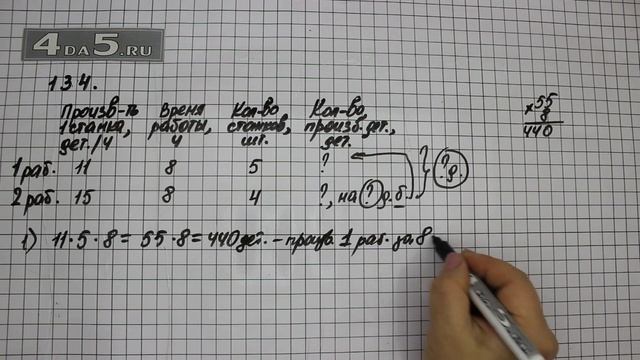 4DA5.RU
134.
Произв-ть Время Кол-во Кол-во
1 станка, работы, станков, произв. дет.,
дет./ч ч шт. дет.
1 раб. 11 8 5 ?
2 раб. 15 8 4 ?, на ? д. б.
? ? д.
×55
8
440
1) 11·5·8 = 55·8 = 440 дет. – произв. 1 раб. за 8